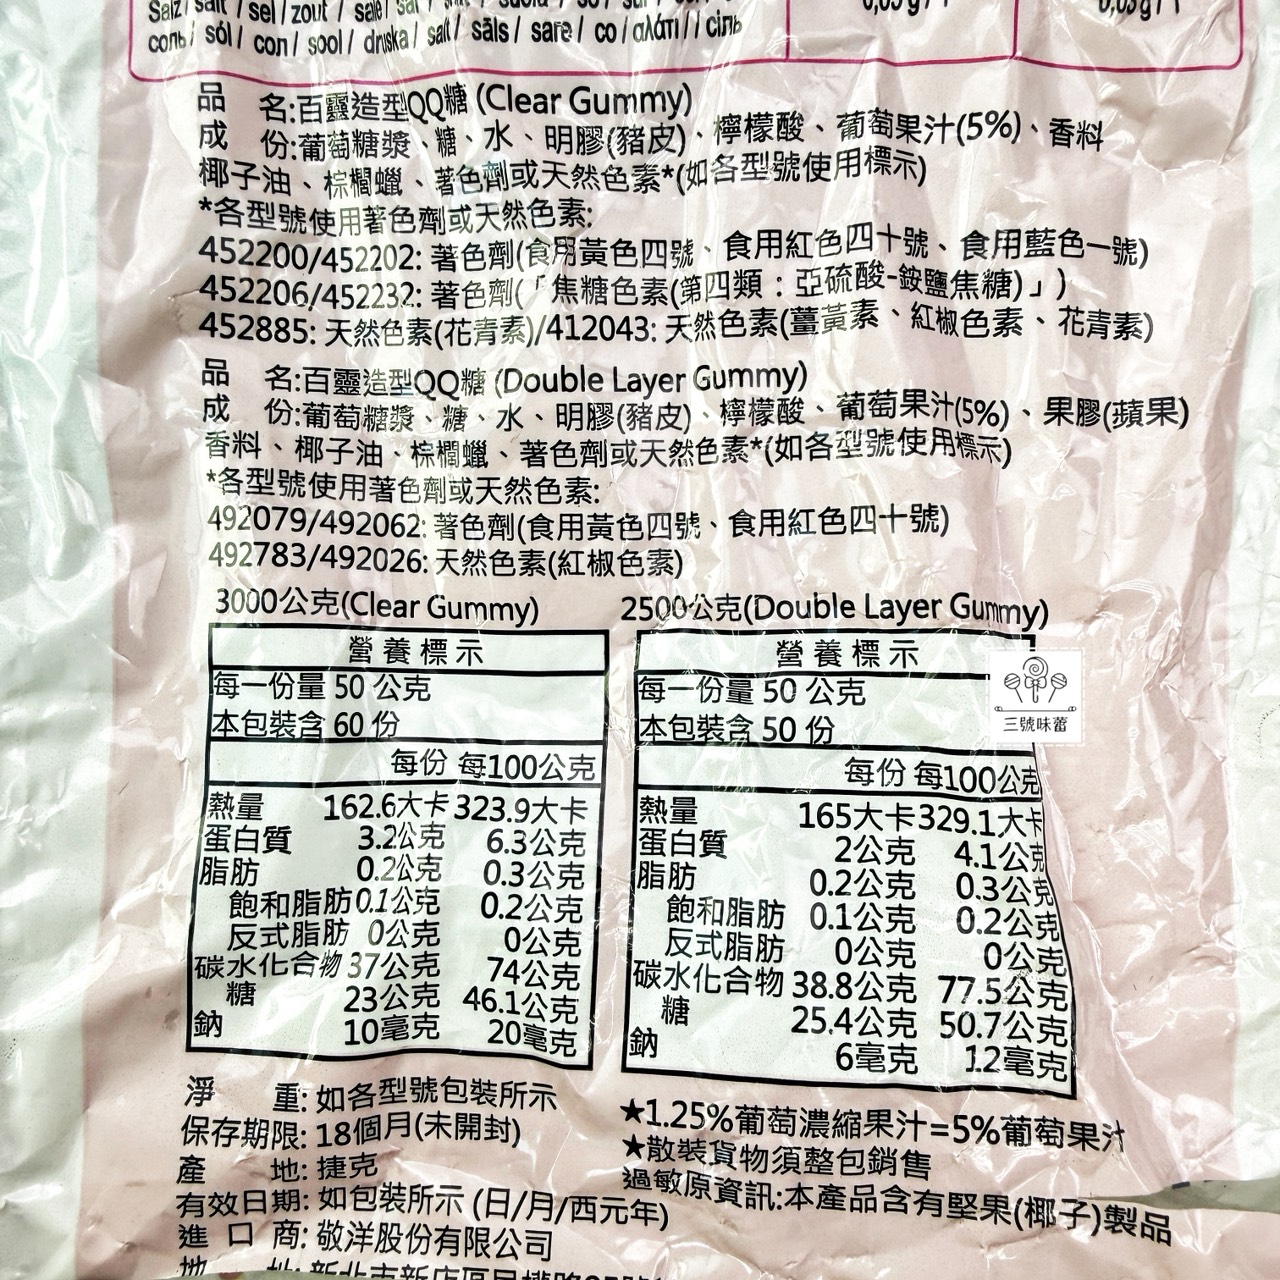 Salz / salt / sel / zout / salё/ sal
соль/ sól / сол / sool / druska / salt / sāls / sare / со / αλάτι / / сіль
品 名:百靈造型QQ糖 (Clear Gummy)
成 份:葡萄糖漿、糖、水、明膠(豬皮)、檸檬酸、葡萄果汁(5%)、香料
椰子油、棕櫚蠟、著色劑或天然色素*(如各型號使用標示)
*各型號使用著色劑或天然色素:
452200/452202: 著色劑(食用黃色四號、食用紅色四十號、食用藍色一號)
452206/452232: 著色劑(「焦糖色素(第四類：亞硫酸-銨鹽焦糖)」)
452885: 天然色素(花青素)/412043: 天然色素(薑黃素、紅椒色素、花青素)
品 名:百靈造型QQ糖 (Double Layer Gummy)
成 份:葡萄糖漿、糖、水、明膠(豬皮)、檸檬酸、葡萄果汁(5%)、果膠(蘋果)
香料、椰子油、棕櫚蠟、著色劑或天然色素*(如各型號使用標示)
*各型號使用著色劑或天然色素:
492079/492062: 著色劑(食用黃色四號、食用紅色四十號)
492783/492026: 天然色素(紅椒色素)
3000公克(Clear Gummy)
營養標示
每一份量 50 公克
本包裝含 60 份
每份 每100公克
熱量 162.6大卡 323.9大卡
蛋白質 3.2公克 6.3公克
脂肪 0.2公克 0.3公克
飽和脂肪 0.1公克 0.2公克
反式脂肪 0公克 0公克
碳水化合物 37公克 74公克
糖 23公克 46.1公克
鈉 10毫克 20毫克
2500公克(Double Layer Gummy)
營養標示
每一份量 50 公克
本包裝含 50 份
每份 每100公克
熱量 165大卡 329.1大卡
蛋白質 2公克 4.1公克
脂肪 0.2公克 0.3公克
飽和脂肪 0.1公克 0.2公克
反式脂肪 0公克 0公克
碳水化合物 38.8公克 77.5公克
糖 25.4公克 50.7公克
鈉 6毫克 12毫克
三號味蕾
淨 重: 如各型號包裝所示
保存期限: 18個月(未開封)
產 地: 捷克
有效日期: 如包裝所示 (日/月/西元年)
進 口 商: 敬洋股份有限公司
★1.25%葡萄濃縮果汁=5%葡萄果汁
★散裝貨物須整包銷售
過敏原資訊:本產品含有堅果(椰子)製品